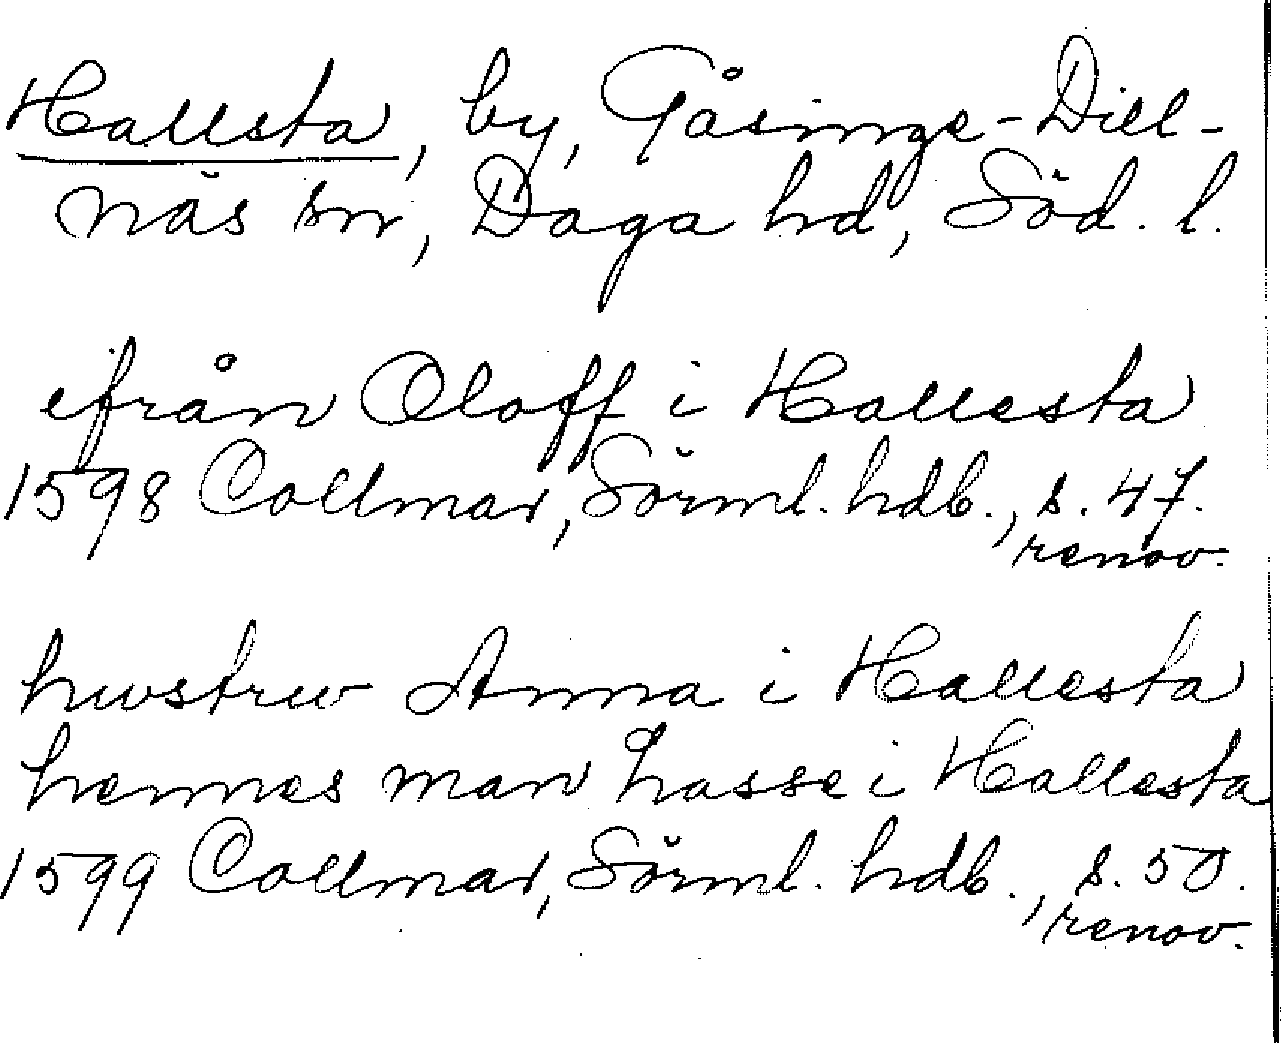 Hallsta, by, Gåsinge-Dill-
näs sn, Daga hd, Söd. l.
ifrån Oloff i Hallesta
1598 Collmar, Sörml. hdb., s. 47.
renov.
hwstrw Anna i Hallesta
hennes man hasse i Hallesta
1599 Collmar, Sörml. hdb., s. 50.
renov.